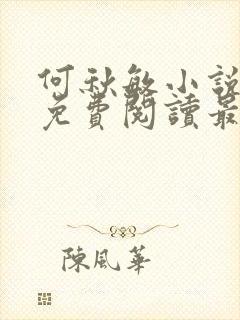 何秋敏小說
免費閱讀最
陳風華